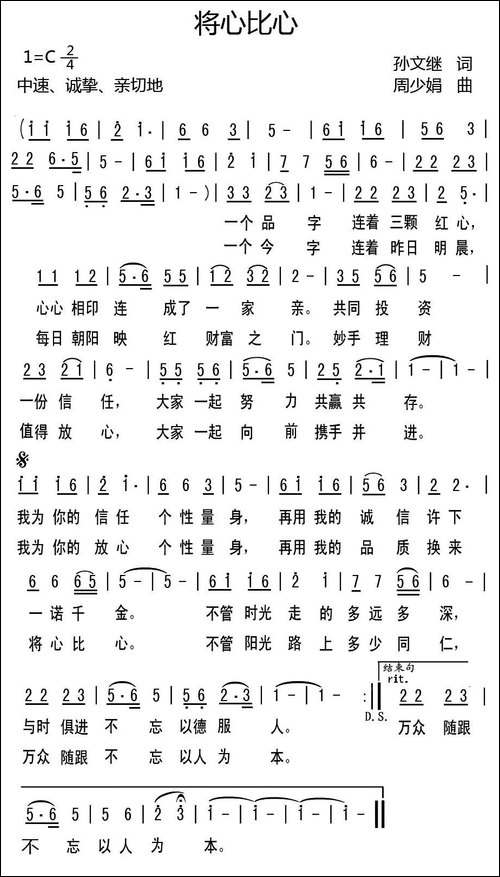 将心比心
1=C 2/4
孙文继 词
中速、诚挚、亲切地
周少娟 曲
(i̇ i̇ i̇ 6 | 2̇ i̇· | 6 6 3 | 5 - | 6 i̇ i̇ 6 | 5 6 3 |
2 2 6·5 | 5 - | 6 i̇ i̇ 6 | 2̇ i̇ | 7 7 5 6 | 6 - | 2 2 2 3 |
5·6 5 | 5 6 2·3 | 1 - ) | 3 3 2 3 | 1 - | 2 2 2 3 | 2 5· |
一个 品 字 连着 三颗 红心,
一个 今 字 连着 昨日 明晨,
1 1 1 2 | 5·6 5 5 | 1 2 3 2 | 1 - | 3 5 5 6 | 5 - |
心心 相印 连 成了 一 家 亲。 共同 投 资
每日 朝阳 映 红 财富 之 门。 妙手 理 财
2 3 2 1 | 6 - | 5 5 5 6 | 5·6 5 | 5 5 2·1 | 1 - | 1 - |
一份 信 任, 大家 一起 努 力 共赢 共 存。
值得 放 心, 大家 一起 向 前 携手 并 进。
i̇ i̇ i̇ 6 | 2̇ i̇· | 6 6 3 | 5 - | 6 i̇ i̇ 6 | 5 6 3 | 2 2· |
我为 你的 信任 个 性量 身, 再用 我的 诚 信 许下
我为 你的 放心 个 性量 身, 再用 我的 品 质 换来
6 6 6 5 | 5 - | 5 - | 6 i̇ i̇ 6 | 2̇ i̇ | 7 7 5 6 | 6 - |
一 诺 千 金。 不管 时光 走 的 多 远 多 深,
将 心 比 心。 不管 阳光 路 上 多 少 同 仁,
结束句
rit.
2 2 2 3 | 5·6 5 | 5 6 2·3 | 1 - | 1 - :‖ 2 2 2 3 |
D.S.
与时 俱进 不 忘 以德 服 人。 万众 随跟
万众 随跟 不 忘 以人 为 本。
5·6 5 | 5 5 6 | 2̇ 3̇ | i̇ - | i̇ - | i̇ - | i̇ - ‖
不 忘 以 人 为 本。